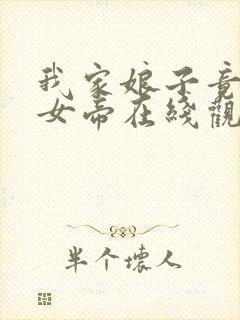 我家娘子竟
女帝在綫觀
半个壞人